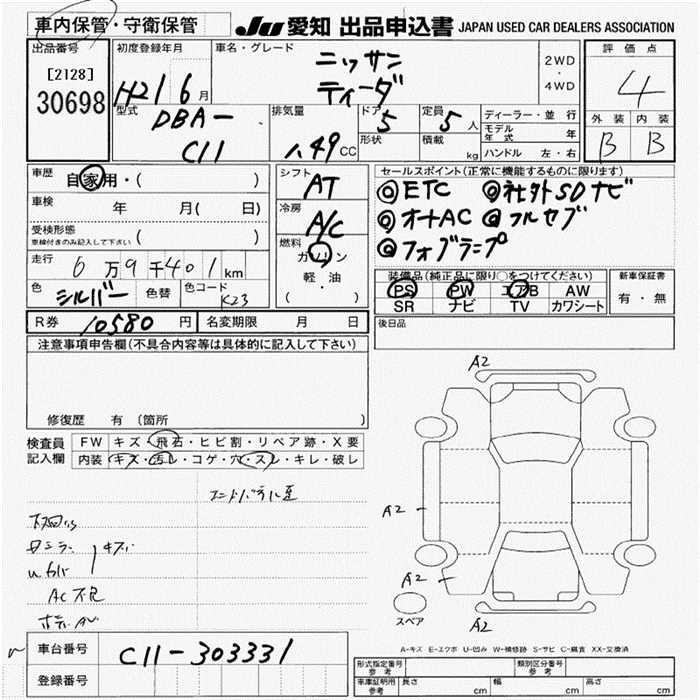 車内保管・守衛保管
JU 愛知 出品申込書 JAPAN USED CAR DEALERS ASSOCIATION
出品番号
[2128]
30698
初度登録年月
H21 6月
車名・グレード
ニッサン
ティーダ
2WD
・
4WD
評価点
4
外装 内装
B B
型式
DBA-
C11
排気量
1.49 CC
ドア
5
形状
定員
5人
積載
kg
ディーラー・並行
モデル年式 年
ハンドル 左・右
車歴
自家用・( )
車検
年 月( 日)
受検形態
車検付きのみ記入して下さい ( )
走行
6万9千401km
色
シルバー
色替
色コード
K23
シフト
AT
冷房
A/C
燃料
ガソリン
軽・油
( )
セールスポイント(正常に機能するものに限ります)
◎ETC ◎社外SDナビ
◎オートAC ◎フルセブ
◎フォグランプ
装備品(純正品に限り○をつけてください)
PS PW エアB AW
SR ナビ TV カワシート
新車保証書
有・無
R券 10580円
名変期限 月 日
後日品
注意事項申告欄(不具合内容等は具体的に記入して下さい)
修復歴 有 (箇所 )
検査員
記入欄
FW キズ・飛石・ヒビ割・リペア跡・X要
内装 キズ・汚レ・コゲ・穴・スレ・キレ・破レ
キズ
AC不良
A2
A2
A2
A2
スペア
A-キズ E-エクボ U-凹み W-補修跡 S-サビ C-腐食 XX-交換済
車台番号
C11-303331
登録番号
形式指定番号
参考
類別区分番号
参考
車庫証明用
参考
長さ cm 幅 cm 高さ cm